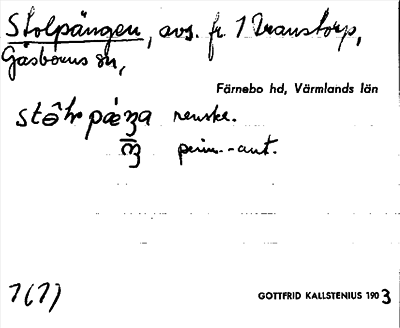 Stolpängen, avs. fr. 1 Transtorp,
Gåsborns sn,
Färnebo hd, Värmlands län
renske.
perm.-ant.
1(1)
GOTTFRID KALLSTENIUS 1903